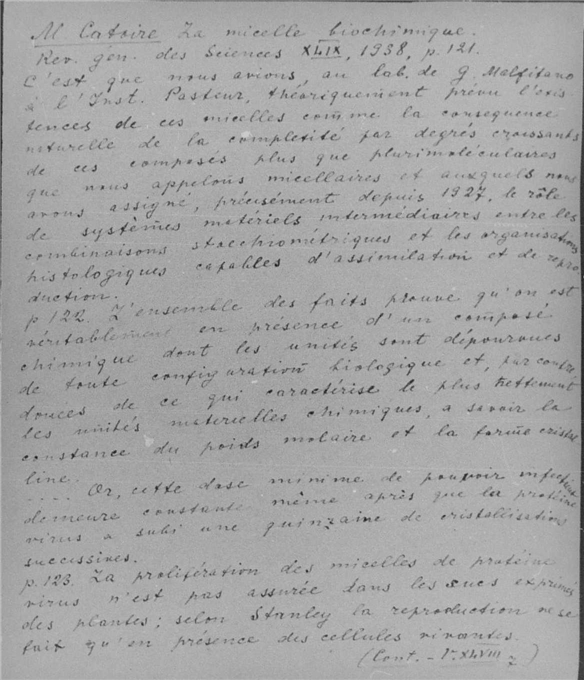 M Catoire La micelle biochimique.
Rev. gén. des Sciences XLIX, 1938, p. 121.
C'est que nous avions, au lab. de G. Malfitano
à l'Inst. Pasteur, théoriquement prévu l'exis-
tences de ces micelles comme la consequence
naturelle de la complexité par degrés croissants
de ces composés plus que plurimoléculaires
que nous appelons micellaires et auxquels nous
avons assigné, précisément depuis 1927, le rôle
de systèmes matériels intermédiaires entre les
combinaisons stoechiométriques et les organisations
histologiques capables d'assimilation et de repro
duction.
p 122. L'ensemble des faits prouve qu'on est
véritablement en présence d'un composé
chimique dont les unités sont dépourvues
de toute configuration biologique et, par contre
douces de ce qui caractérise le plus nettement
les unités materielles chimiques, a savoir la
constance du poids molaire et la forme cristal
line.
.... Or, cette dose minime de pouvoir infectieux
demeure constante même après que la protéine
virus a subi une quinzaine de cristallisations
successives.
p. 123. La prolifération des micelles de protéine
virus n'est pas assurée dans les sucs exprimés
des plantes; selon Stanley la reproduction ne se
fait qu'en présence des cellules vivantes.
(Cont. - XLVIII)